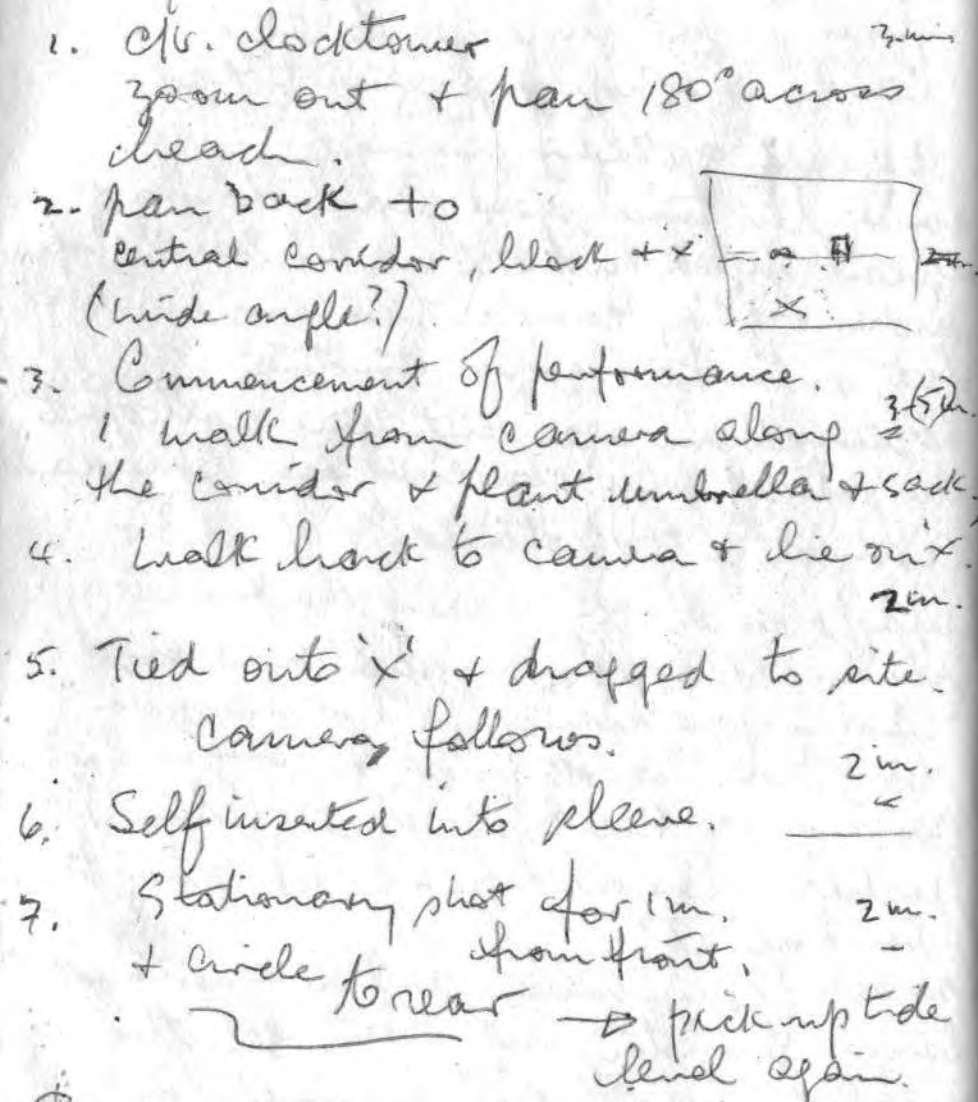 1. c/u. clocktower 3. min
zoom out + pan 180° across
beach.
2. pan back to
central corridor, block + 'x'
(wide angle?)
X
3. Commencement of performance.
1 walk from camera along 3 (5)
the corridor + plant umbrella + sack.
4. Walk back to camera + lie on 'x'.
2 m.
5. Tied onto 'x' + dragged to site.
Camera follows.
2 m.
6. Self inserted into sleeve.
7. Stationary shot for 1 m. 2 m.
+ circle from front.
to rear → pick up tide
level again.